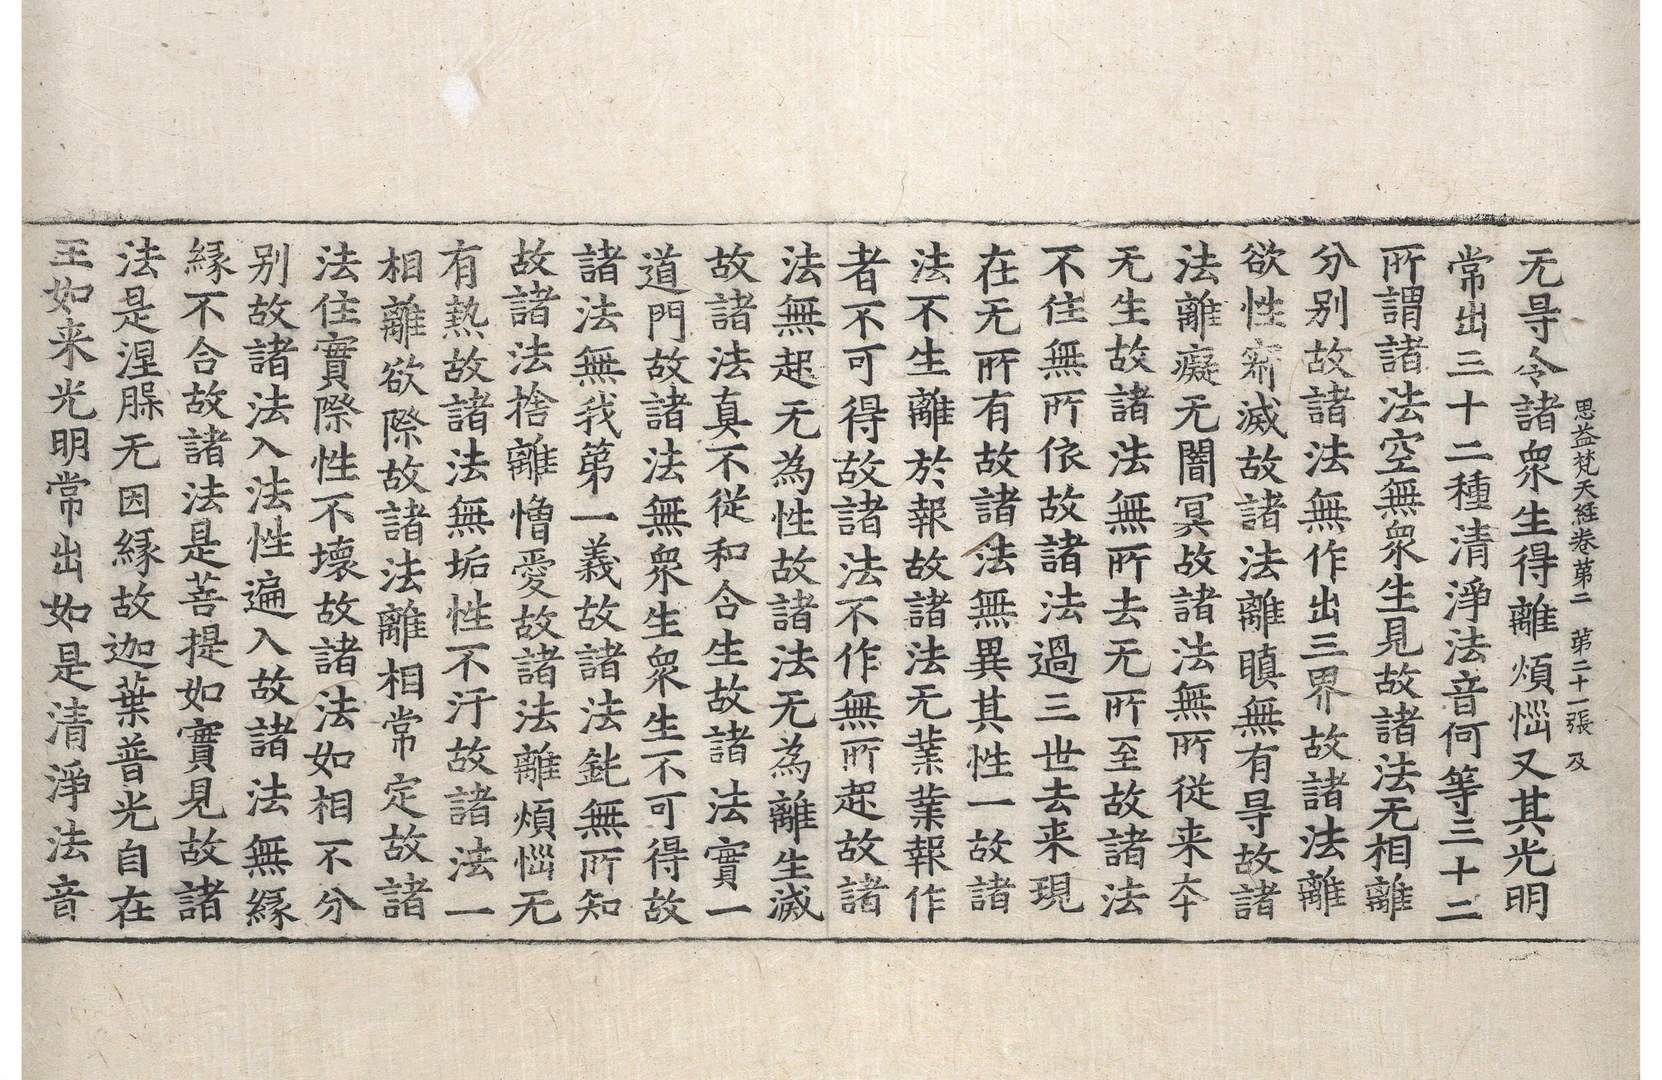 思益梵天経巻第二　第二十一張　及
无㝵令諸衆生得離煩惱又其光明
常出三十二種清淨法音何等三十二
所謂諸法空無衆生見故諸法无相離
分别故諸法無作出三界故諸法離
欲性寂滅故諸法離瞋無有㝵故諸
法離癡无闇冥故諸法無所從来夲
无生故諸法無所去无所至故諸法
不住無所依故諸法過三世去来現
在无所有故諸法無異其性一故諸
法不生離於報故諸法无業業報作
者不可得故諸法不作無所起故諸
法無起无為性故諸法无為離生滅
故諸法真不從和合生故諸法實一
道門故諸法無衆生衆生不可得故
諸法無我第一義故諸法鈍無所知
故諸法捨離憎愛故諸法離煩惱无
有熱故諸法無垢性不汙故諸法一
相離欲際故諸法離相常定故諸
法住實際性不壞故諸法如相不分
别故諸法入法性遍入故諸法無緣
緣不合故諸法是菩提如實見故諸
法是涅槃无因緣故迦葉普光自在
王如来光明常出如是清淨法音